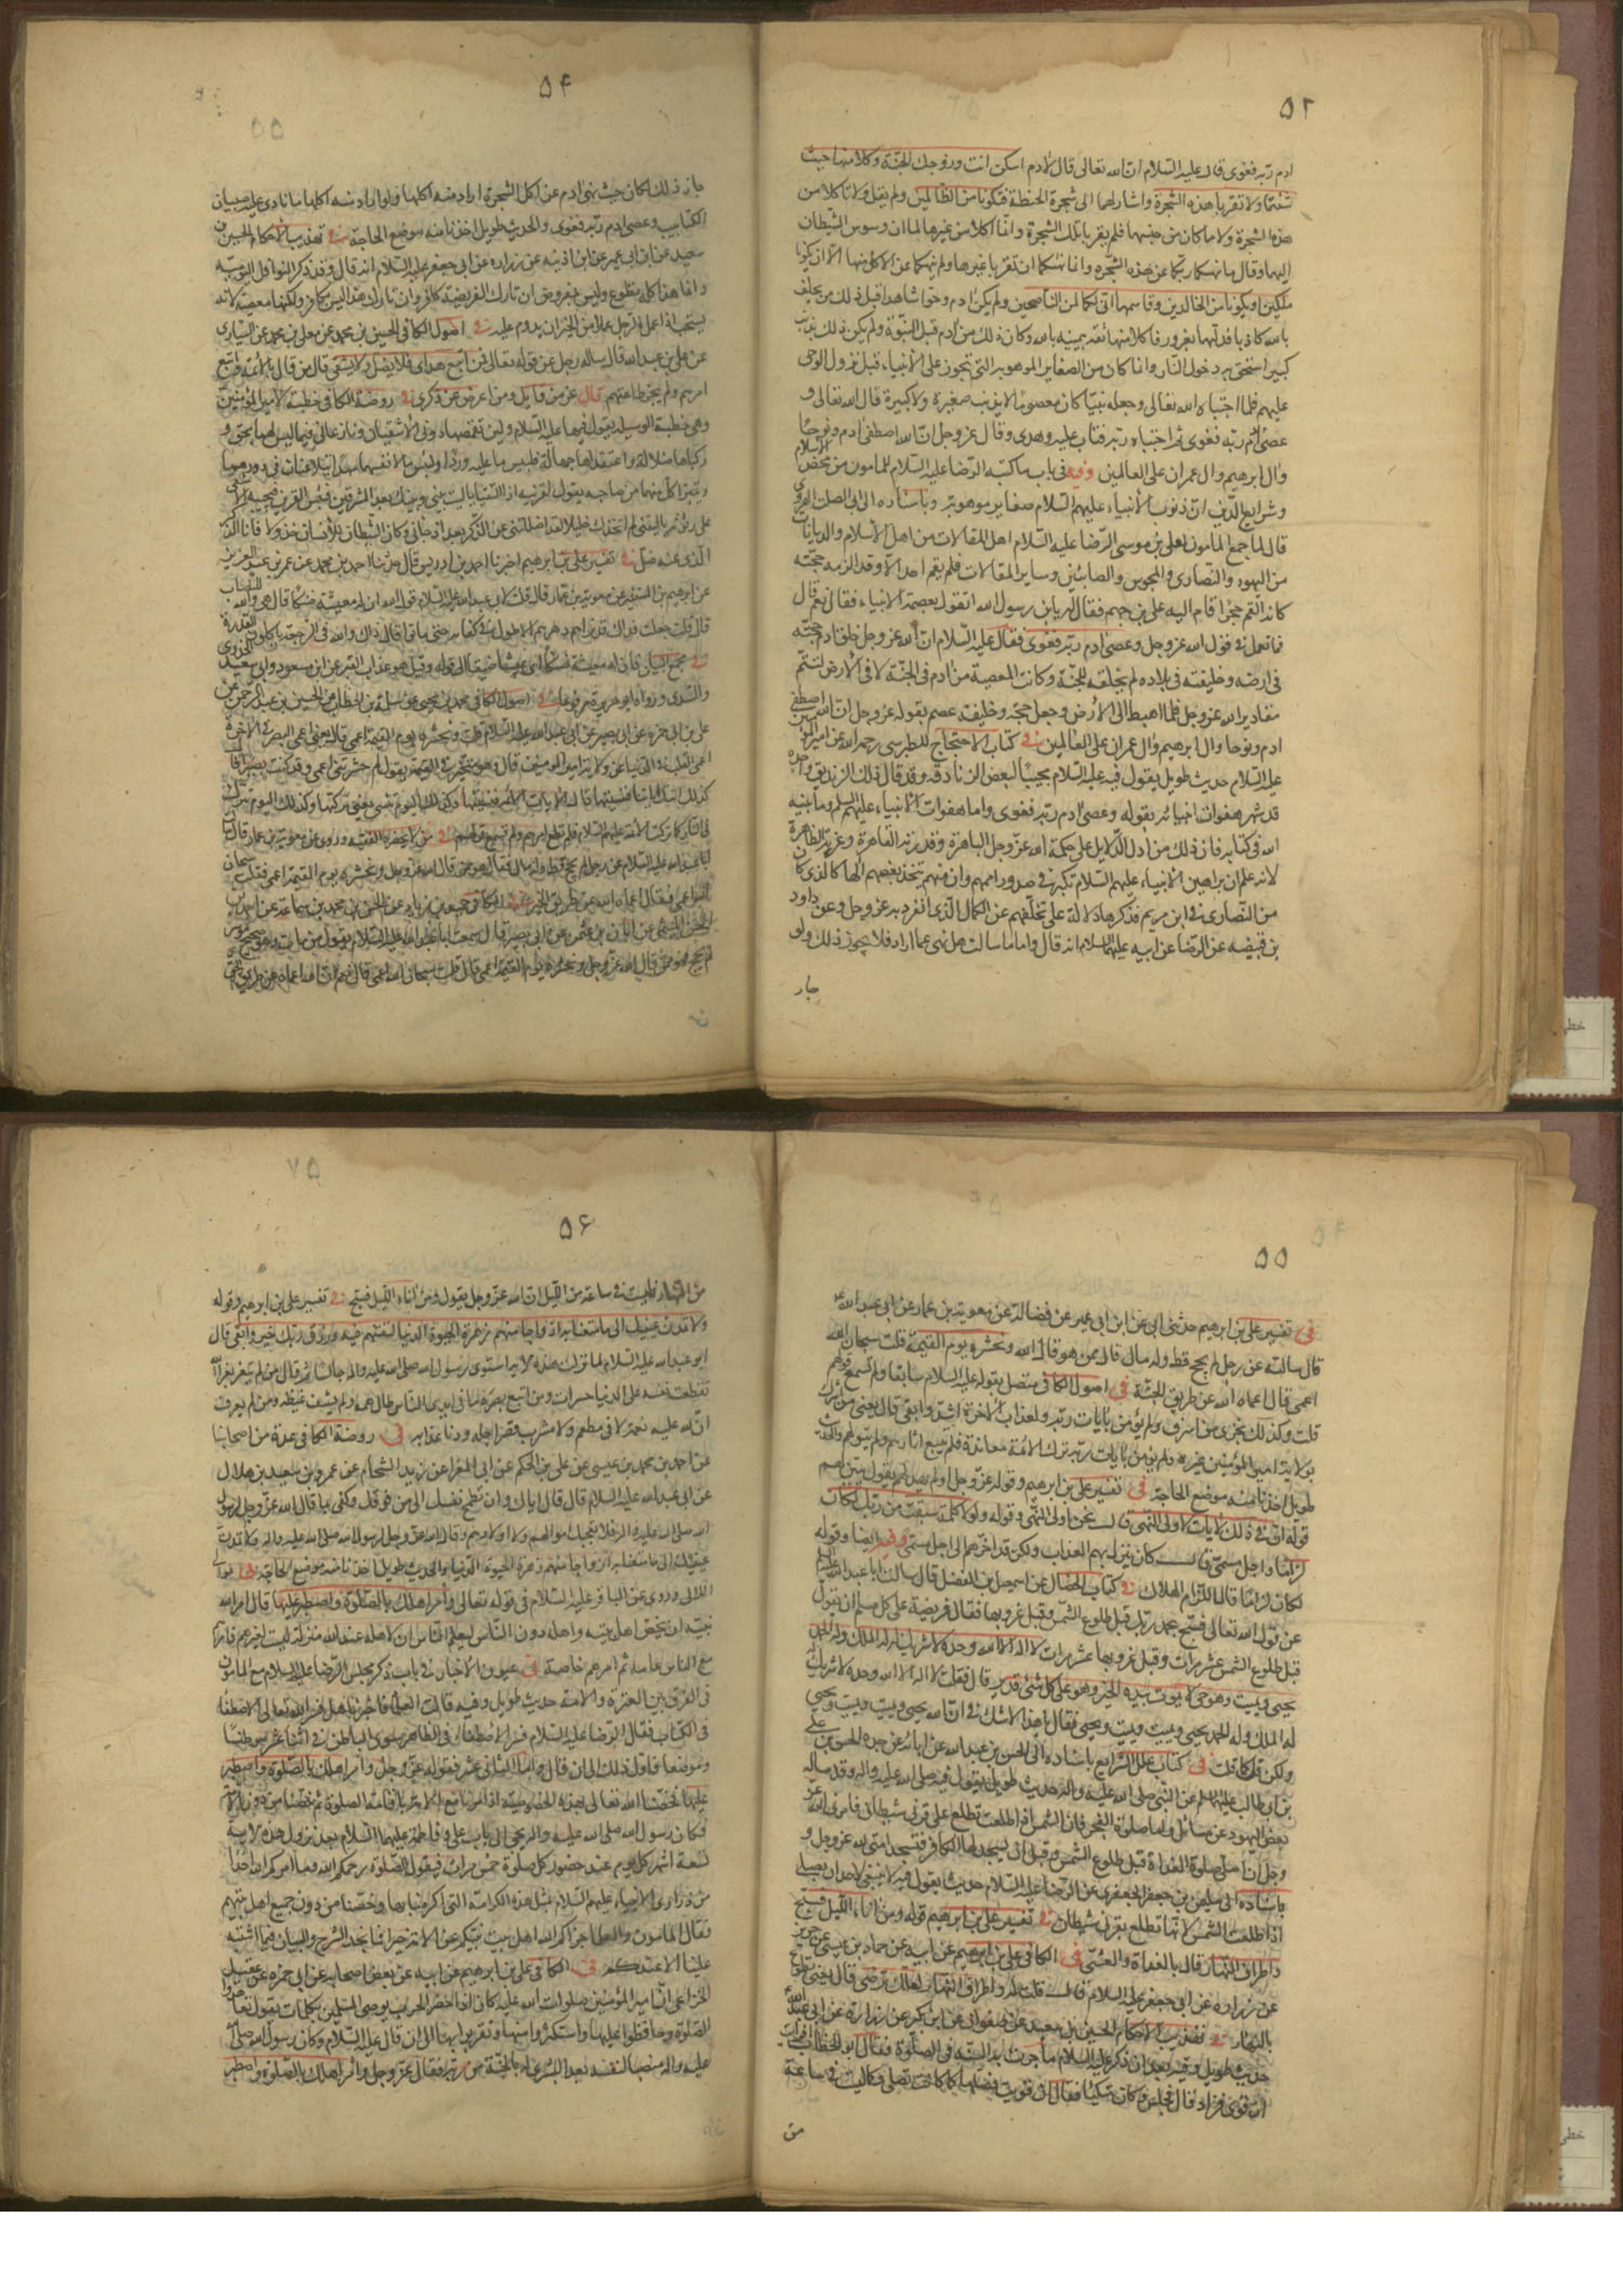 ۵۲
ادم ربه فغوى قال عليه السلام ان الله تعالى قال لادم اسكن انت وزوجك الجنة وكلا منها حيث
شئتما ولا تقربا هذه الشجرة واشار لهما الى شجرة الحنطة فتكونا من الظالمين ولم يقل ولا تاكلا من
هذه الشجرة ولا مما كان من جنسها فلم يقربا تلك الشجرة وانما اكلا من غيرها لما ان وسوس الشيطان
اليهما وقال ما نهيكما ربكما عن هذه الشجرة وانما نهيكما ان تقربا غيرها ولم ينهكما عن الاكل منها الا ان تكونا
ملكين او تكونا من الخالدين وقاسمهما انى لكما لمن الناصحين ولم يكن ادم وحوا شاهدا قبل ذلك من يحلف
بالله كاذبا فدليهما بغرور فاكلا منها ثقة بيمينه بالله وكان ذلك من ادم قبل النبوة ولم يكن ذلك بذنب
كبير استحق به دخول النار وانما كان من الصغاير الموهوبة التى تجوز على الانبياء قبل نزول الوحى
عليهم فلما اجتباه الله تعالى وجعله نبيا كان معصوما لا يذنب صغيرة ولا كبيرة قال الله تعالى و
عصى ادم ربه فغوى ثم اجتباه ربه فتاب عليه وهدى وقال عز وجل ان الله اصطفى ادم ونوحا
وال ابرهيم وال عمران على العالمين وفيه فى باب ما كتبه الرضا عليه السلام للمامون من محض الاسلام
وشرايع الدين ان ذنوب الانبياء عليهم السلام صغاير موهوبة وباسناده الى ابى الصلت الهروى
قال لما جمع المامون لعلى بن موسى الرضا عليه السلام اهل المقالات من اهل الاسلام والديانات
من اليهود والنصارى والمجوس والصابئين وساير المقالات فلم يقم احد الا وقد الزمه حجته
كانه القم حجرا قام اليه على بن جهم فقال له يا بن رسول الله اتقول بعصمة الانبياء فقال نعم قال
فما تعمل فى قول الله عز وجل وعصى ادم ربه فغوى فقال عليه السلام ان الله عز وجل خلق ادم حجته
فى ارضه وخليفته فى بلاده لم يخلقه للجنة وكانت المعصية من ادم فى الجنة لا فى الارض لتتم
مقادير الله عز وجل فلما اهبط الى الارض وجعل حجة وخليفة عصم بقوله عز وجل ان الله اصطفى
ادم ونوحا وال ابرهيم وال عمران على العالمين فى كتاب الاحتجاج للطبرسى رحمه الله عن امير المؤمنين
عليه السلام حديث طويل يقول فيه عليه السلام مجيبا لبعض الزنادقة وقد قال ذلك الزنديق واجده
قد شهر هفوات انبيائه بقوله وعصى ادم ربه فغوى واما هفوات الانبياء عليهم السلم وما بينه
الله فى كتابه فان ذلك من ادل الدلايل على حكمة الله عز وجل الباهرة وقدرته القاهرة وعزته الظاهرة
لانه علم ان براهين الانبياء عليهم السلام تكبر فى صدور اممهم وان منهم يتخذ بعضهم الها كالذى كان
من النصارى فى ابن مريم فذكرها دلالة على تخلفهم عن الكمال الذى انفرد به عز وجل وعن داود
بن قبيصه عن الرضا عن ابيه عليهما السلام انه قال واما ما سالت هل نهى عما اراد فلا يجوز ذلك ولو
جاز
۵۴
جاز ذلك لكان حيث نهى ادم عن اكل الشجرة اراد منه اكلها ولو اراد منه اكلها ما نادى عليه صبيان
الكتاتيب وعصى ادم ربه فغوى والحديث طويل اخذنا منه موضع الحاجة فى تهذيب الاحكام الحسين بن
سعيد عن ابن ابى عمير عن ابن اذينه عن زراره عن ابى جعفر عليه السلام انه قال وقد ذكر النوافل اليومية
وانما هذا كله تطوع وليس بمفروض ان تارك الفريضة كافر وان تارك هذا ليس بكافر ولكنها معصية لانه
يستحب اذا عمل الرجل عملا من الخير ان يدوم عليه فى اصول الكافى الحسين بن محمد عن معلى بن محمد عن السيارى
عن على بن عبد الله قال ساله رجل عن قوله تعالى فمن اتبع هداى فلا يضل ولا يشقى قال من قال بالائمة واتبع
امرهم ولم يجز طاعتهم قال عز من قايل ومن اعرض عن ذكرى فى روضة الكافى خطبة لامير المؤمنين
وهى خطبة الوسيلة يقول فيها عليه السلام ولئن تقمصها دونى الاشقيان ونازعانى فيما ليس لهما بحق و
ركباها ضلالة واعتقداها جهالة فلبئس ما عليه وردا ولبئس ما لانفسهما مهدا يتلاعنان فى دورهما
ويتبرأ كل منهما من صاحبه يقول لقرينه اذا التقيا يا ليت بينى وبينك بعد المشرقين فبئس القرين فيجيبه الاشقى
على رثوثة يا ليتنى لم اتخذك خليلا لقد اضللتنى عن الذكر بعد اذ جاءنى وكان الشيطان للانسان خذولا فانا الذكر
الذى عنه ضل فى تفسير على بن ابرهيم اخبرنا احمد بن ادريس قال حدثنا احمد بن محمد عن عمر بن عبد العزيز
عن ابرهيم بن المستنير عن معوية بن عمار قال قلت لابى عبد الله عليه السلام قول الله ان له معيشة ضنكا قال هى والله للنصاب
قال قلت جعلت فداك قد رايتهم دهرهم الاطول فى كفاية حتى ماتوا قال ذاك والله فى الرجعة ياكلون العذرة
فى مجمع البيان فان له معيشة ضنكا اى عيشا ضيقا الى قوله وقيل هو عذاب القبر عن ابن مسعود وابى سعيد الخدرى
والسدى ورواه ابو هريرة مرفوعا فى اصول الكافى محمد بن يحيى عن سلمة بن الخطاب عن الحسين بن عبد الرحمن عن
على بن ابى حمزه عن ابى بصير عن ابى عبد الله عليه السلام قلت ونحشره يوم القيمة اعمى قال يعنى اعمى البصر فى الاخرة
اعمى القلب فى الدنيا عن ولاية امير المؤمنين قال وهو متحير فى القيمة يقول لم حشرتنى اعمى وقد كنت بصيرا قال
كذلك اتتك اياتنا فنسيتها قال الايات الائمة فنسيتها وكذلك اليوم تنسى يعنى تركتها وكذلك اليوم تترك
فى النار كما تركت الائمة عليهم السلام فلم تطع امرهم ولم تسمع قولهم فى من لا يحضره الفقيه وروى عن معوية بن عمار قال سالت
ابا عبد الله عليه السلام عن رجل لم يحج قط وله مال فقال هو ممن قال الله عز وجل ونحشره يوم القيمة اعمى فقلت سبحان
الله اعمى فقال اعماه الله عن طريق الخير فى الكافى حميد بن زياد عن الحسن بن محمد بن سماعة عن احمد بن
الحسن الميثمى عن ابان بن عثمن عن ابى بصير قال سمعت ابا عبد الله عليه السلام يقول من مات وهو صحيح موسر
لم يحج فهو ممن قال الله عز وجل ونحشره يوم القيمة اعمى قال قلت سبحان الله اعمى قال نعم ان الله اعماه عن طريق الحق
۵۵
فى تفسير على بن ابرهيم حدثنى ابى عن ابن ابى عمير عن فضالة عن معوية بن عمار عن ابى عبد الله
قال سالته عن رجل لم يحج قط وله مال قال هو ممن قال الله ونحشره يوم القيمة قلت سبحان الله
اعمى قال اعماه الله عن طريق الجنة فى اصول الكافى متصل بقوله عليه السلام سابقا ولم تسمع قولهم
قلت وكذلك نجزى من اسرف ولم يؤمن بايات ربه ولعذاب الاخرة اشد وابقى قال يعنى من اشرك
بولاية امير المؤمنين غيره ولم يؤمن بايات ربه ترك الائمة معاندة فلم يتبع اثارهم ولم يتولهم والحديث
طويل اخذنا منه موضع الحاجة فى تفسير على بن ابرهيم وقوله عز وجل اولم يهد لهم يقول يبين لهم
قوله ان فى ذلك لايات لاولى النهى قال نحن اولى النهى وقوله ولولا كلمة سبقت من ربك لكان
لزاما واجل مسمى قال كان ينزل بهم العذاب ولكن قد اخرهم الى اجل مسمى وفيه ايضا وقوله
لكان لزاما قال اللزام الهلاك فى كتاب الخصال عن اسمعيل بن الفضل قال سالت ابا عبد الله عليه السلام
عن قول الله تعالى فسبح بحمد ربك قبل طلوع الشمس وقبل غروبها فقال فريضة على كل مسلم ان يقول
قبل طلوع الشمس عشر مرات وقبل غروبها عشر مرات لا اله الا الله وحده لا شريك له له الملك وله الحمد
يحيى ويميت وهو حى لا يموت بيده الخير وهو على كل شىء قدير قال فقلت لا اله الا الله وحده لا شريك
له الملك وله الحمد يحيى ويميت ويميت ويحيى فقال يا هذا لا شك فى ان الله يحيى ويميت ويميت ويحيى
ولكن قل كما قلت فى كتاب علل الشرايع باسناده الى الحسن بن عبد الله عن ابائه عن جده الحسن بن على
بن ابى طالب عليهم السلم عن النبى صلى الله عليه واله حديث طويل يقول فيه صلى الله عليه واله وقد ساله
بعض اليهود عن مسائل واما صلوة الفجر فان الشمس اذا طلعت تطلع على قرنى شيطان فامرنى الله عز
وجل ان اصلى صلوة الغداة قبل طلوع الشمس وقبل ان يسجد لها الكافر فتسجد امتى لله عز وجل و
باسناده الى سليمن بن جعفر الجعفرى عن الرضا عليه السلام حديث يقول فيه لا ينبغى لاحد ان يصلى
اذا طلعت الشمس لانها تطلع بقرنى شيطان فى تفسير على بن ابرهيم قوله ومن اناء الليل فسبح
واطراف النهار قال بالغداة والعشى فى الكافى على بن ابرهيم عن ابيه عن حماد بن عيسى عن حريز
عن زراره عن ابى جعفر عليه السلام قال قلت له واطراف النهار لعلك ترضى قال يعنى تطوع
بالنهار فى تهذيب الاحكام الحسين بن سعيد عن صفوان عن ابن بكير عن زرارة عن ابى عبد الله
حديث طويل وفيه بعد ان ذكر عليه السلام ما جرت به السنة فى الصلوة فقال ابو الخطاب افرايت
ان قوى فزاد قال فجلس وكان متكئا فقال ان قويت فصلها كما كانت تصلى وكما ليست فى ساعة
من
۵۶
من النهار فليست فى ساعة من الليل ان الله عز وجل يقول ومن اناء الليل فسبح فى تفسير على بن ابرهيم وقوله
ولا تمدن عينيك الى ما متعنا به ازواجا منهم زهرة الحيوة الدنيا لنفتنهم فيه ورزق ربك خير وابقى قال
ابو عبد الله عليه السلام لما نزلت هذه الاية استوى رسول الله صلى الله عليه واله جالسا ثم قال من لم يتعز بعزاء الله
تقطعت نفسه على الدنيا حسرات ومن اتبع بصره ما فى ايدى الناس طال همه ولم يشف غيظه ومن لم يعرف
ان لله عليه نعمة لا فى مطعم ولا مشرب قصر اجله ودنا عذابه فى روضة الكافى عدة من اصحابنا
عن احمد بن محمد بن عيسى عن على بن الحكم عن ابى المغرا عن زيد الشحام عن عمرو بن سعيد بن هلال
عن ابى عبد الله عليه السلام قال قال اياك وان تطمح نفسك الى من فوقك وكفى بما قال الله عز وجل لرسول
الله صلى الله عليه واله فلا تعجبك اموالهم ولا اولادهم وقال الله عز وجل لرسوله صلى الله عليه واله ولا تمدن
عينيك الى ما متعنا به ازواجا منهم زهرة الحيوة الدنيا والحديث طويل اخذنا منه موضع الحاجة فى عوالى
اللالى وروى عن الباقر عليه السلام فى قوله تعالى وأمر اهلك بالصلوة واصطبر عليها قال امر الله
نبيه ان يخص اهل بيته واهله دون الناس ليعلم الناس ان لاهله عند الله منزلة ليست لغيرهم فامرهم
مع الناس عامة ثم امرهم خاصة فى عيون الاخبار فى باب ذكر مجلس الرضا عليه السلام مع المامون
فى الفرق بين العترة والامة حديث طويل وفيه قالت العلماء فاخبرنا هل فسر الله تعالى الاصطفاء
فى الكتاب فقال الرضا عليه السلام فسر الاصطفاء فى الظاهر سوى الباطن فى اثنى عشر موطنا
وموضعا فاول ذلك الى ان قال واما الثانى عشر فقوله عز وجل وأمر اهلك بالصلوة واصطبر
عليها فخصنا الله تعالى بهذه الخصوصية اذ امرنا مع الامة باقامة الصلوة ثم خصنا من دون الامة
فكان رسول الله صلى الله عليه واله يجئ الى باب على وفاطمة عليهما السلام بعد نزول هذه الاية
تسعة اشهر كل يوم عند حضور كل صلوة خمس مرات فيقول الصلوة رحمكم الله وما اكرم الله احدا
من ذرارى الانبياء عليهم السلام بمثل هذه الكرامة التى اكرمنا بها وخصنا من دون جميع اهل بيتهم
فقال المامون والعلماء جزاكم الله اهل بيت نبيكم عن الامة خيرا فما نجد الشرح والبيان فيما اشتبه
علينا الا عندكم فى الكافى على بن ابرهيم عن ابيه عن بعض اصحابه عن ابى حمزه عن عقيل
الخزاعى ان امير المؤمنين صلوات الله عليه كان اذا حضر الحرب يوصى المسلمين بكلمات يقول تعاهدوا
الصلوة وحافظوا عليها واستكثروا منها وتقربوا بها الى ان قال عليه السلام وكان رسول الله صلى الله
عليه واله منصبا لنفسه بعد البشرى له بالجنة من ربه فقال عز وجل وأمر اهلك بالصلوة واصطبر